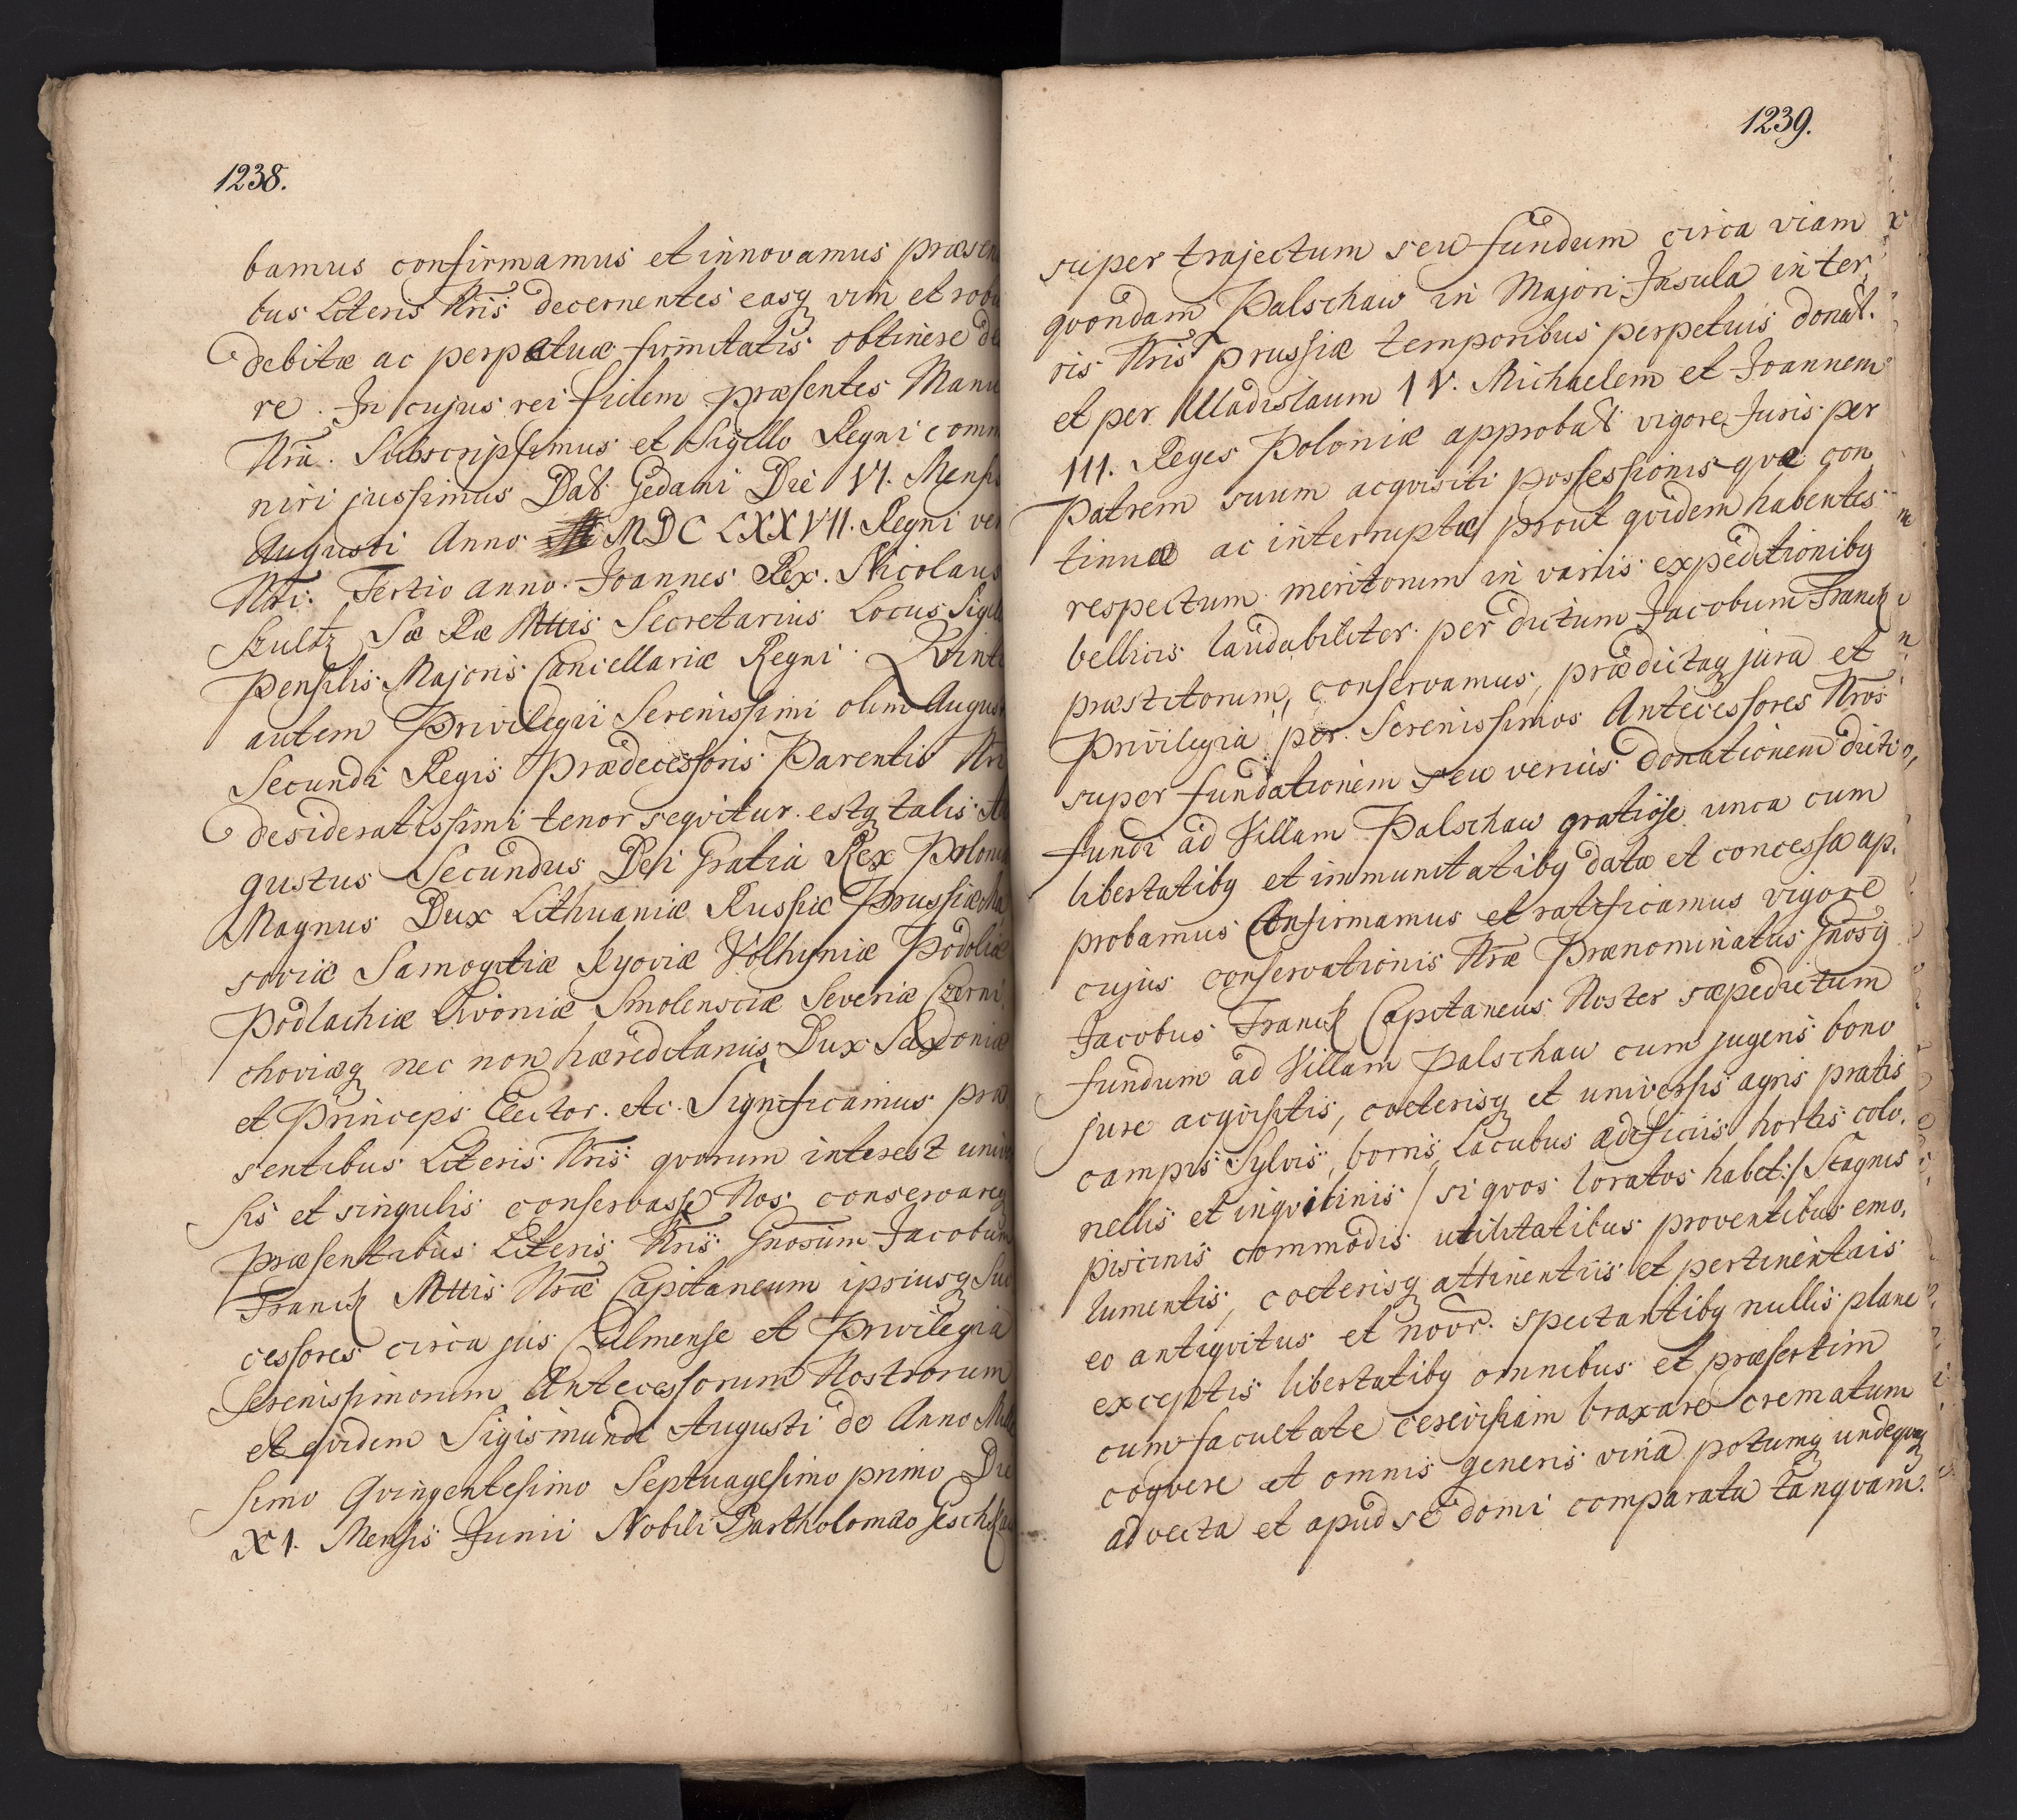 1238.
bamus confirmamus et innovamus præsen
bus Literis Nris decernentes easq vim et robu
debitæ ac perpetuæ firmitatis obtinere de
re. In cujus rei fidem præsentes Manu
Nra. Subscripsimus et Sigillo Regni comm
niri jussimus Dat Gedani Die VI. Mensis
Augusti Anno MDCLXXVII. Regni ver
Nri. Tertio anno. Joannes Rex. Nicolaus
Szultz Sæ Ræ Mttis Secretarius Locus Sigil
Pensilis Majoris Cancellariæ Regni. Qvinti
autem Privilegii Serenissimi olim August
Secundi Regis Prædecessoris Parentis Nri
desideratissimi tenor seqvitur estq talis Au
gustus Secundus Dei Gratia Rex Poloniæ
Magnus Dux Lithuaniæ Russiæ Prussiæ Ma
soviæ Samogitiæ Kyoviæ Volhyniæ Podoliæ
Podlachiæ Livoniæ Smolensciæ Severiæ Czerni
choviæq nec non hæreditarius Dux Saxoniæ
et Princeps Elector. etc. Significamus præ
sentibus Literis Nris qvorum interest univer
sis et singulis conservasse Nos conservareq
præsentibus Literis Nris Gnosum Jacobum
Franck Mttis Nræ Capitaneum ipsiusq Suc
cessores circa jus Culmense et Privilegia
Serenissimorum Antecessorum Nostrorum
et qvidem Sigismundi Augusti de Anno Mille
simo Qvingentesimo Septuagesimo primo Die
XI. Mensis Junii Nobili Bartholomæo Geschkau
1239.
super trajectum seu fundum circa viam
qvondam Palschaw in Majori Insula inter,
ris Nris Prussiæ temporibus perpetuis donat.
et per Uladislaum IV. Michaelem et Joannem
III. Reges Poloniæ approbat vigore Juris per
Patrem suum acqvisiti possessionis qvæ con
tinuæ ac interruptæ prout qvidem habentes
respectum meritorum in variis expeditionibq
bellicis laudabiliter per dictum Jacobum Franck
præstitorum, conservamus, prædictaq jura et
Privilegia per Serenissimos Antecessores Nros
super fundationem seu verius donationem dicti
fundi ad Villam Palschaw gratiose unca cum
libertatibq et immunitatibq data et concessa ap,
probamus Confirmamus et ratificamus vigore
cujus conservationis Nræ Prænominatus Gnosq
Jacobus Franck Capitaneus Noster sæpedictum
fundum ad Villam Palschaw cum jugeris bono
jure acqvisitis, cæterisq et universis agris pratis
campis Sylvis, borris, Lacubus ædificiis hortis colo,
nellis et inqvilinis /si qvos locatos habet:/ Stagnis
piscinis commodis utilitatibus proventibus emo,
lumentis, cæterisq attinentiis et pertinentais
eo antiqvitus et novr. spectantibq nullis plane
exceptis libertatibq omnibus et præsertim
cum facultate cerevisiam braxare crematum
coqvere et omnis generis vina potumq undeqvaq
advecta et apud se domi comparata tanqvam.